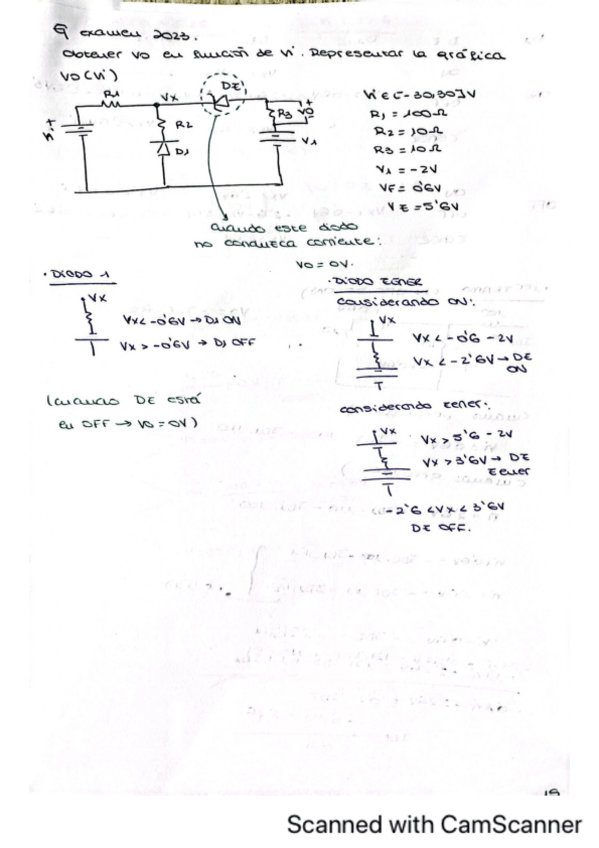 examen 2023.
Obtener vo en función de vi. Representar la gráfica
VO(Vi)
R1
Vx
DZ
+
R3
VO
+
Vi
R2
D1
V1
Vi ∈ [-30,30] V
R1 = 100Ω
R2 = 10Ω
R3 = 10Ω
V1 = -2V
VF = 0'6V
VZ = 5'6V
cuando este diodo
no conduzca corriente:
VO = 0V.
· DIODO 1
Vx
Vx < -0'6V → D1 ON
Vx > -0'6V → D1 OFF
(cuando DZ está
en OFF → VO = 0V)
· DIODO ZENER
considerando ON:
Vx
Vx < -0'6 - 2V
Vx < -2'6V → DZ
ON
considerando zener:
Vx
Vx > 5'6 - 2V
Vx > 3'6V → DZ
zener
-2'6 < Vx < 3'6V
DZ OFF.
Scanned with CamScanner